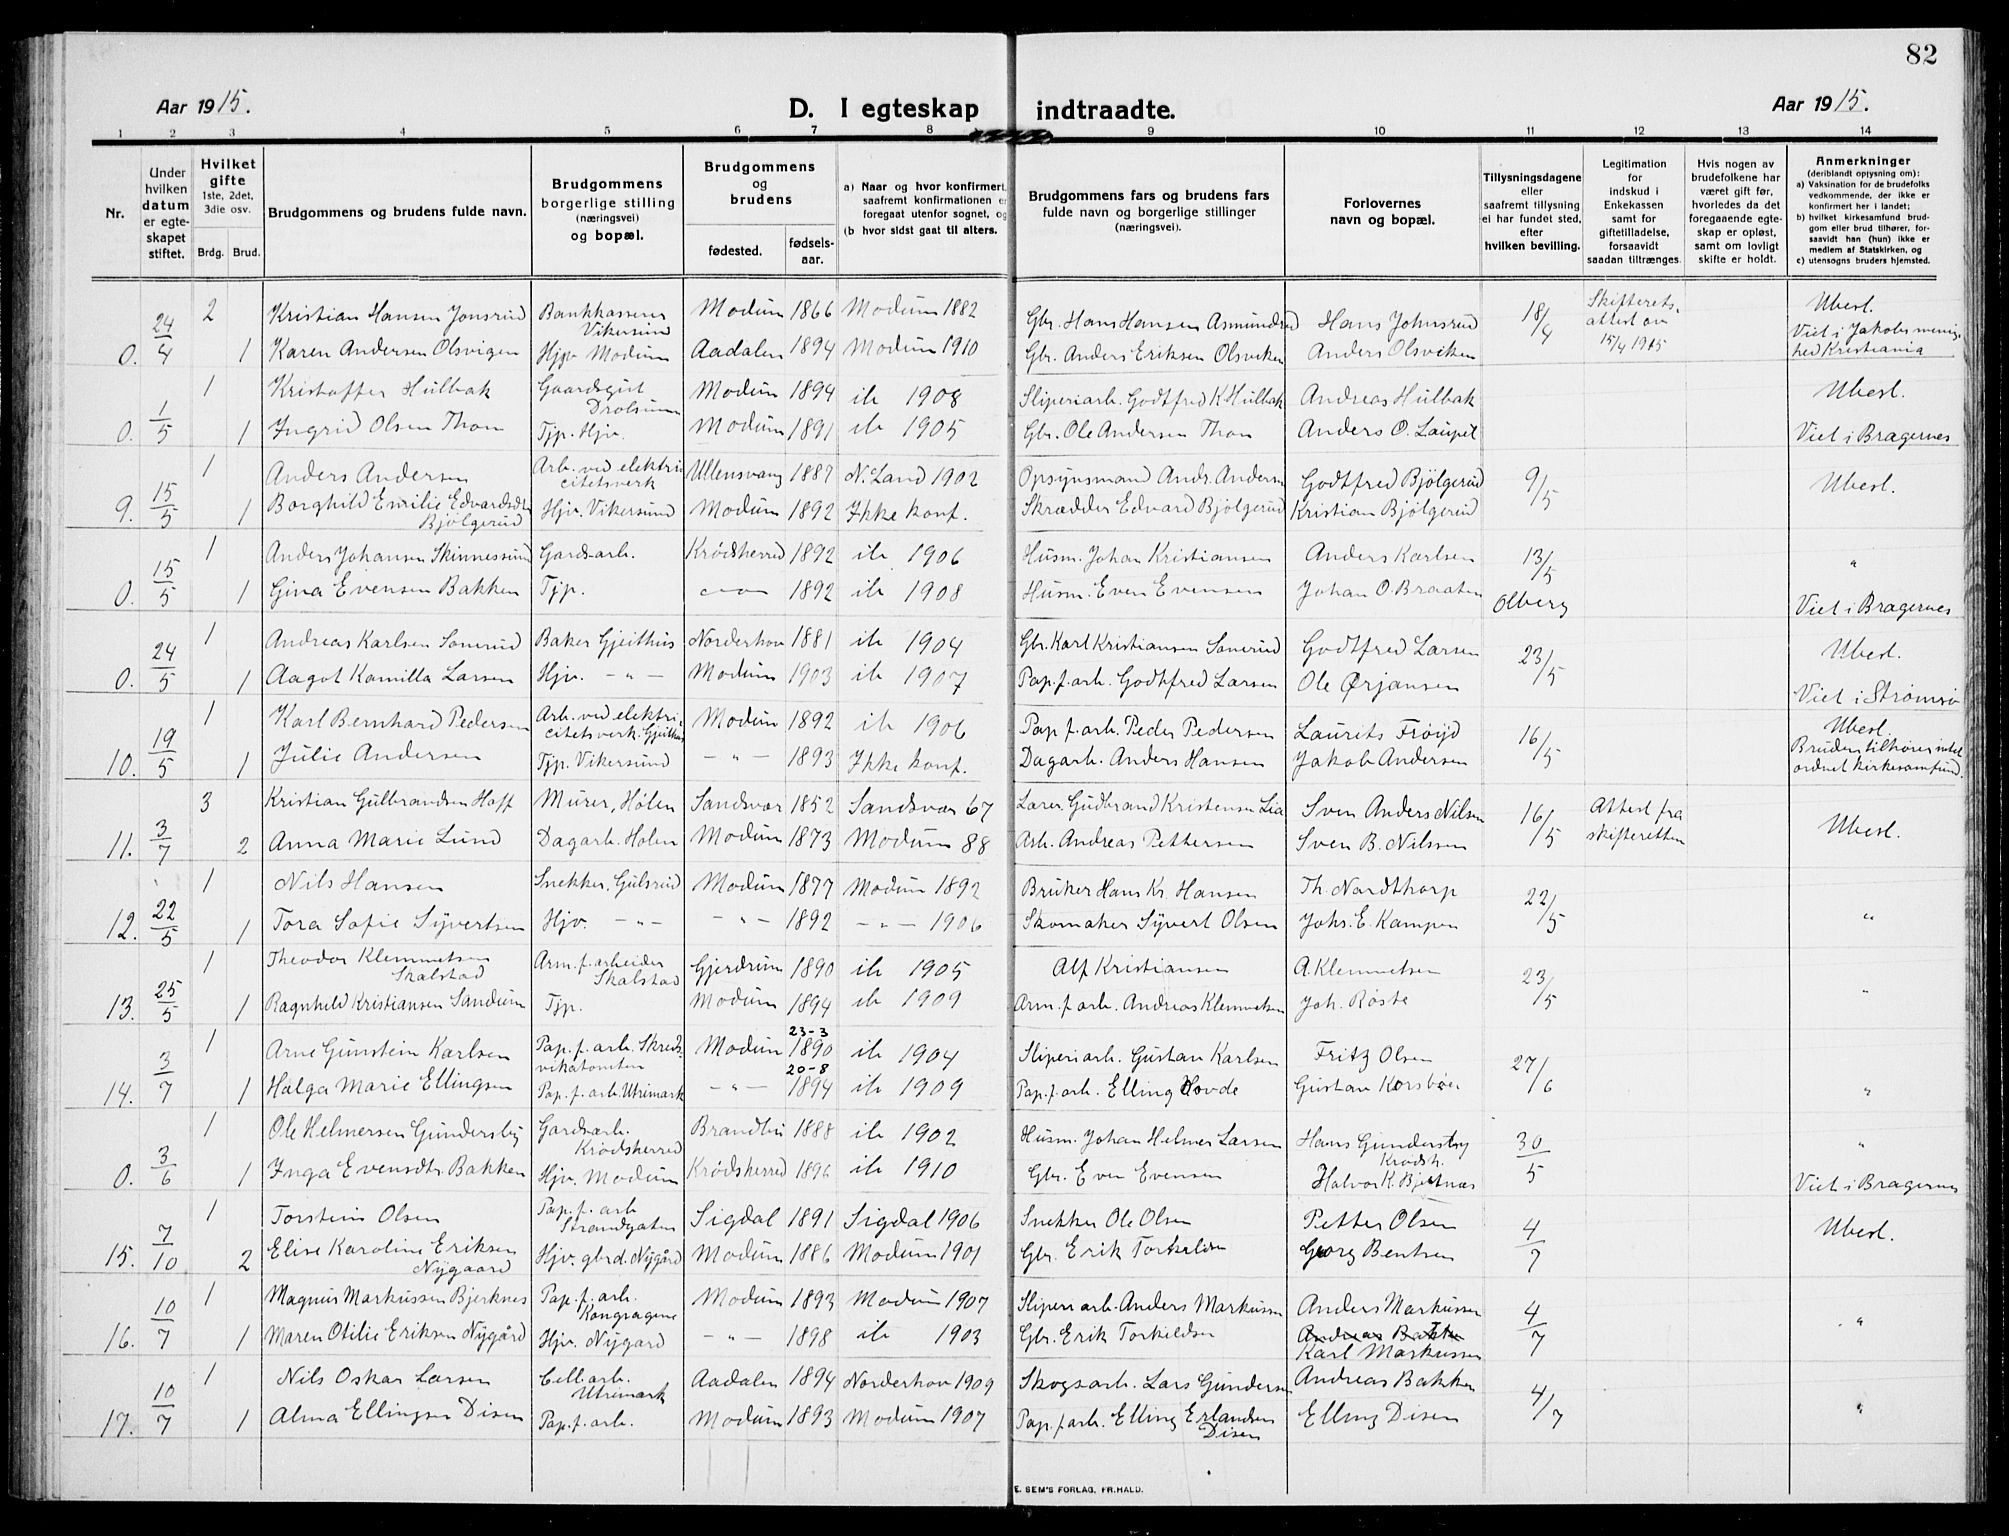 82
Aar 1915.
D. I egteskap indtraadte.
Aar 1915.
1 2 3 4 5 6 7 8 9 10 11 12 13 14
Nr.
Under hvilken datum er egteskapet stiftet.
Hvilket gifte 1ste, 2det, 3die osv.
Brdg. Brud.
Brudgommens og brudens fulde navn.
Brudgommens borgerlige stilling (næringsvei) og bopæl.
Brudgommens og brudens
fødested. fødselsaar.
a) Naar og hvor konfirmert, saafremt konfirmationen er foregaat utenfor sognet, og
(b hvor sidst gaat til alters.
Brudgommens fars og brudens fars fulde navn og borgerlige stillinger (næringsvei).
Forlovernes navn og bopæl.
Tillysningsdagene eller saafremt tillysning ei har fundet sted, efter hvilken bevilling.
Legitimation for indskud i Enkekassen samt for giftetilladelse, forsaavidt saadan tiltrænges.
Hvis nogen av brudefolkene har været gift før, hvorledes da det foregaaende egteskap er opløst, samt om lovligt skifte er holdt.
Anmerkninger (deriblandt oplysning om):
a) Vaksination for de brudefolks vedkommende, der ikke er konfirmert her i landet;
b) hvilket kirkesamfund brudgom eller brud tilhører, forsaavidt han (hun) ikke er medlem af Statskirken, og
c) utensogns bruders hjemsted.
2 Kristian Hansen Jonsrud Bankkasserer Vikersund Modum 1866 Modum 1882 Gbr. Hans Hansen Asmundrud Hans Johnsrud 18/4 Skifteretsattest av 15/4 1915 Ubesl.
0. 24/4 1 Karen Andersen Olsvigen Hjv. Modum Aadalen 1894 Modum 1910 Gbr. Anders Eriksen Olsviken Anders Olsviken Viet i Jakobs menighed Kristiania
1 Kristoffer Hulbak Gaardsgut Drolsum Modum 1894 ib 1908 Sliperiarb. Godtfred K. Hulbak Andreas Hulbak Ubesl.
0. 1/5 1 Ingrid Olsen Thon Tjp. Hjv. Modum 1891 ib 1905 Gbr. Ole Andersen Thon Anders O. Viet i Bragernes
1 Anders Andersen Arb. ved elektricitetsverk Ullensvang 1887 N. Land 1902 Opsynsmand Andr. Andersen Godtfred Bjølgerud 9/5 Ubesl.
9. 15/5 1 Borghild Emilie Edvardsdtr Bjølgerud Hjv. Vikersund Modum 1892 Ikke konf. Skrædder Edvard Bjølgerud Kristian Bjølgerud
1 Anders Johansen Skinnessund Gardsarb. Krødsherred 1892 ib 1906 Husm. Johan Kristiansen Anders Karlsen 13/5 "
0. 15/5 1 Gina Evensen Bakken Tjp. 1892 ib 1908 Husm. Even Evensen Johan O. Braaten Olberg Viet i Bragernes
1 Andreas Karlsen Sonerud Baker Gjeithus Norderhov 1881 ib 1904 Gbr. Karl Kristiansen Sonerud Godtfred Larsen 23/5 Ubesl.
0. 24/5 1 Aagot Kamilla Larsen Hjv. - " - Modum 1903 ib 1907 Pap.f.arb. Godtfred Larsen Ole Ørjansen Viet i Strømsø
1 Karl Bernhard Pedersen Arb. ved elektricitetsverk. Gjeithus Modum 1892 ib 1906 Pap.f.arb. Peder Pedersen Laurits Frøyd 16/5 Ubesl.
10. 19/5 1 Julie Andersen Tjp. Vikersund - " - 1893 Ikke konf. Dagarb. Anders Hansen Jakob Andersen Bruden tilhører intet ordnet kirkesamfund.
3 Kristian Gulbrandsen Hoff Murer, Holen Sandsvær 1852 Sandsvær 67 Lærer Gudbrand Kristensen Lia Sven Anders Nilsen 16/5 Attest fra skifteretten Ubesl.
11. 3/7 2 Anna Marie Lund Dagarb. Holen Modum 1873 Modum 88 Arb. Andreas Pettersen Sven B. Nilssen
1 Nils Hansen Snekker, Gulsrud Modum 1877 Modum 1892 Bruker Hans Kr. Hansen Th. Nordthorp 22/5 "
12. 22/5 1 Tora Sofie Syvertsen Hjv. - " - - " - 1892 - " - 1906 Skomaker Syvert Olsen Johs. E. Kampen
1 Theodor Klemmetsen Skalstad Arm.f.arbeider Skalstad Gjerdrum 1890 ib 1905 Alf Kristiansen A. Klemmetsen 23/5 "
13. 25/5 1 Ragnhild Kristiansen Sandum Tjp. Modum 1894 ib 1909 Arm.f.arb. Andreas Klemmetsen Joh. Røste
1 Arne Gunstein Karlsen Pap.f.arb. Skredsvikatomten Modum 23-3 1890 ib 1904 Sliperiarb. Gustav Karlsen Fritz Olsen 27/6 "
14. 3/7 1 Halga Marie Ellingsen Pap.f.arb. Utrimark - " - 20-8 1894 ib 1909 Pap.f.arb. Elling Hovde Gustav Korsbøen
1 Ole Helmersen Gundersby Gardsarb. Krødsherred Brandbu 1888 ib 1902 Husm. Johan Helmer Larsen Hans Gundersby Krødsh. 30/5 "
0. 3/6 1 Inga Evensdtr. Bakken Hjv. Modum Krødsherred 1896 ib 1910 Gbr. Even Evensen Halvor K. Bjertnæs Viet i Bragernes
1 Torstein Olsen Pap.f.arb Strandgaten Sigdal 1891 Sigdal 1906 Snekker Ole Olsen Petter Olsen 4/7 Ubesl.
15. 7/10 2 Elise Karoline Eriksen Nygaard Hjv. gbrd. Nygård Modum 1886 Modum 1901 Gbr. Erik Torkildsen Georg Bentsen
1 Magnus Markussen Bjerknes Pap.f.arb. Kongragene Modum 1893 Modum 1907 Sliperiarb. Anders Markussen Anders Markussen 4/7 "
16. 10/7 1 Maren Otilie Eriksen Nygård Hjv. Nygard - " - 1898 ib 1903 Gbr. Erik Torkildsen Andreas Bakken Karl Markussen
1 Nils Oskar Larsen Cell.arb. Utrimark Aadalen 1894 Norderhov 1909 Skogsarb. Lars Gundersen Andreas Bakken 4/7 "
17. 10/7 1 Alma Ellingsen Disen Pap.f.arb. Modum 1893 Modum 1907 Pap.f.arb. Elling Erlandsen Disen Elling Disen
E. SEM'S FORLAG, FR.HALD.